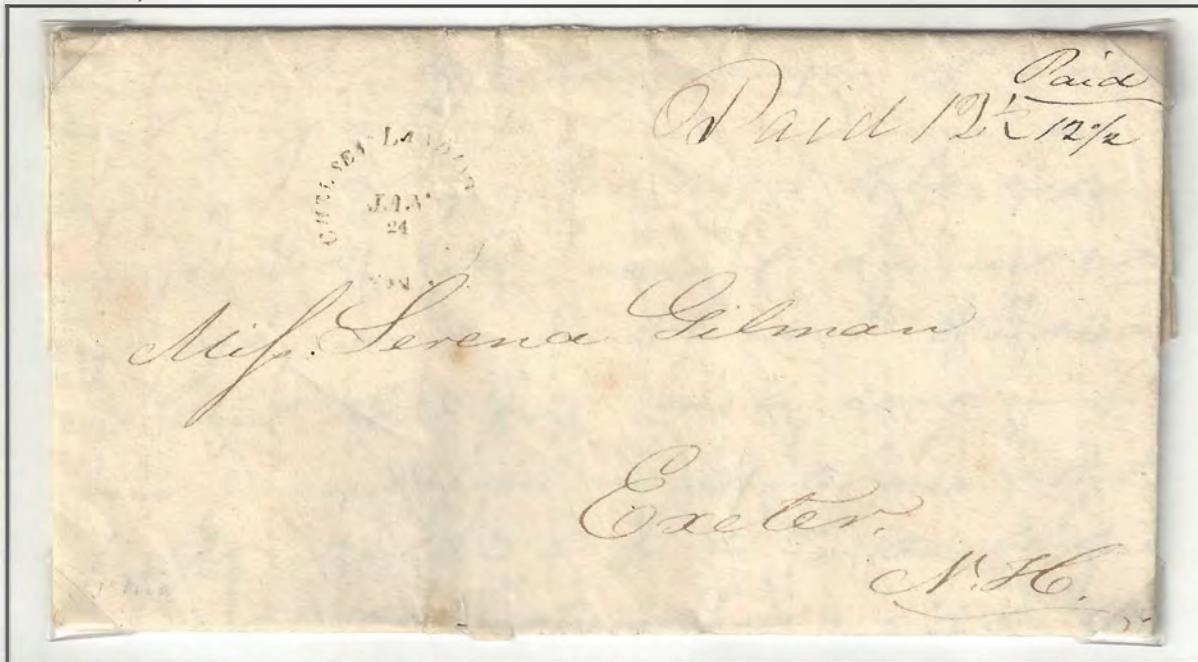 Paid
Paid 12½ 12½
CHELSEA LANDING
JAN
24
CON
Miſs. Serena Gilman
Exeter.
N. H.